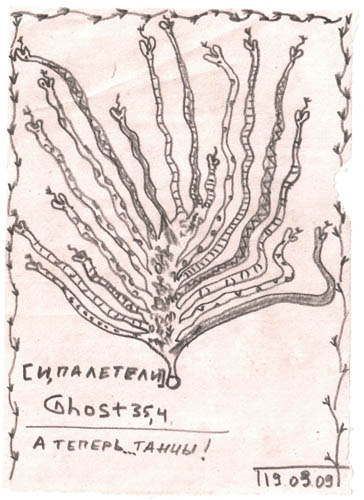 [ЦПАЛЕТЕЛИ]
Ghost 35,4
А ТЕПЕРЬ...ТАНЦЫ!
19.09.09